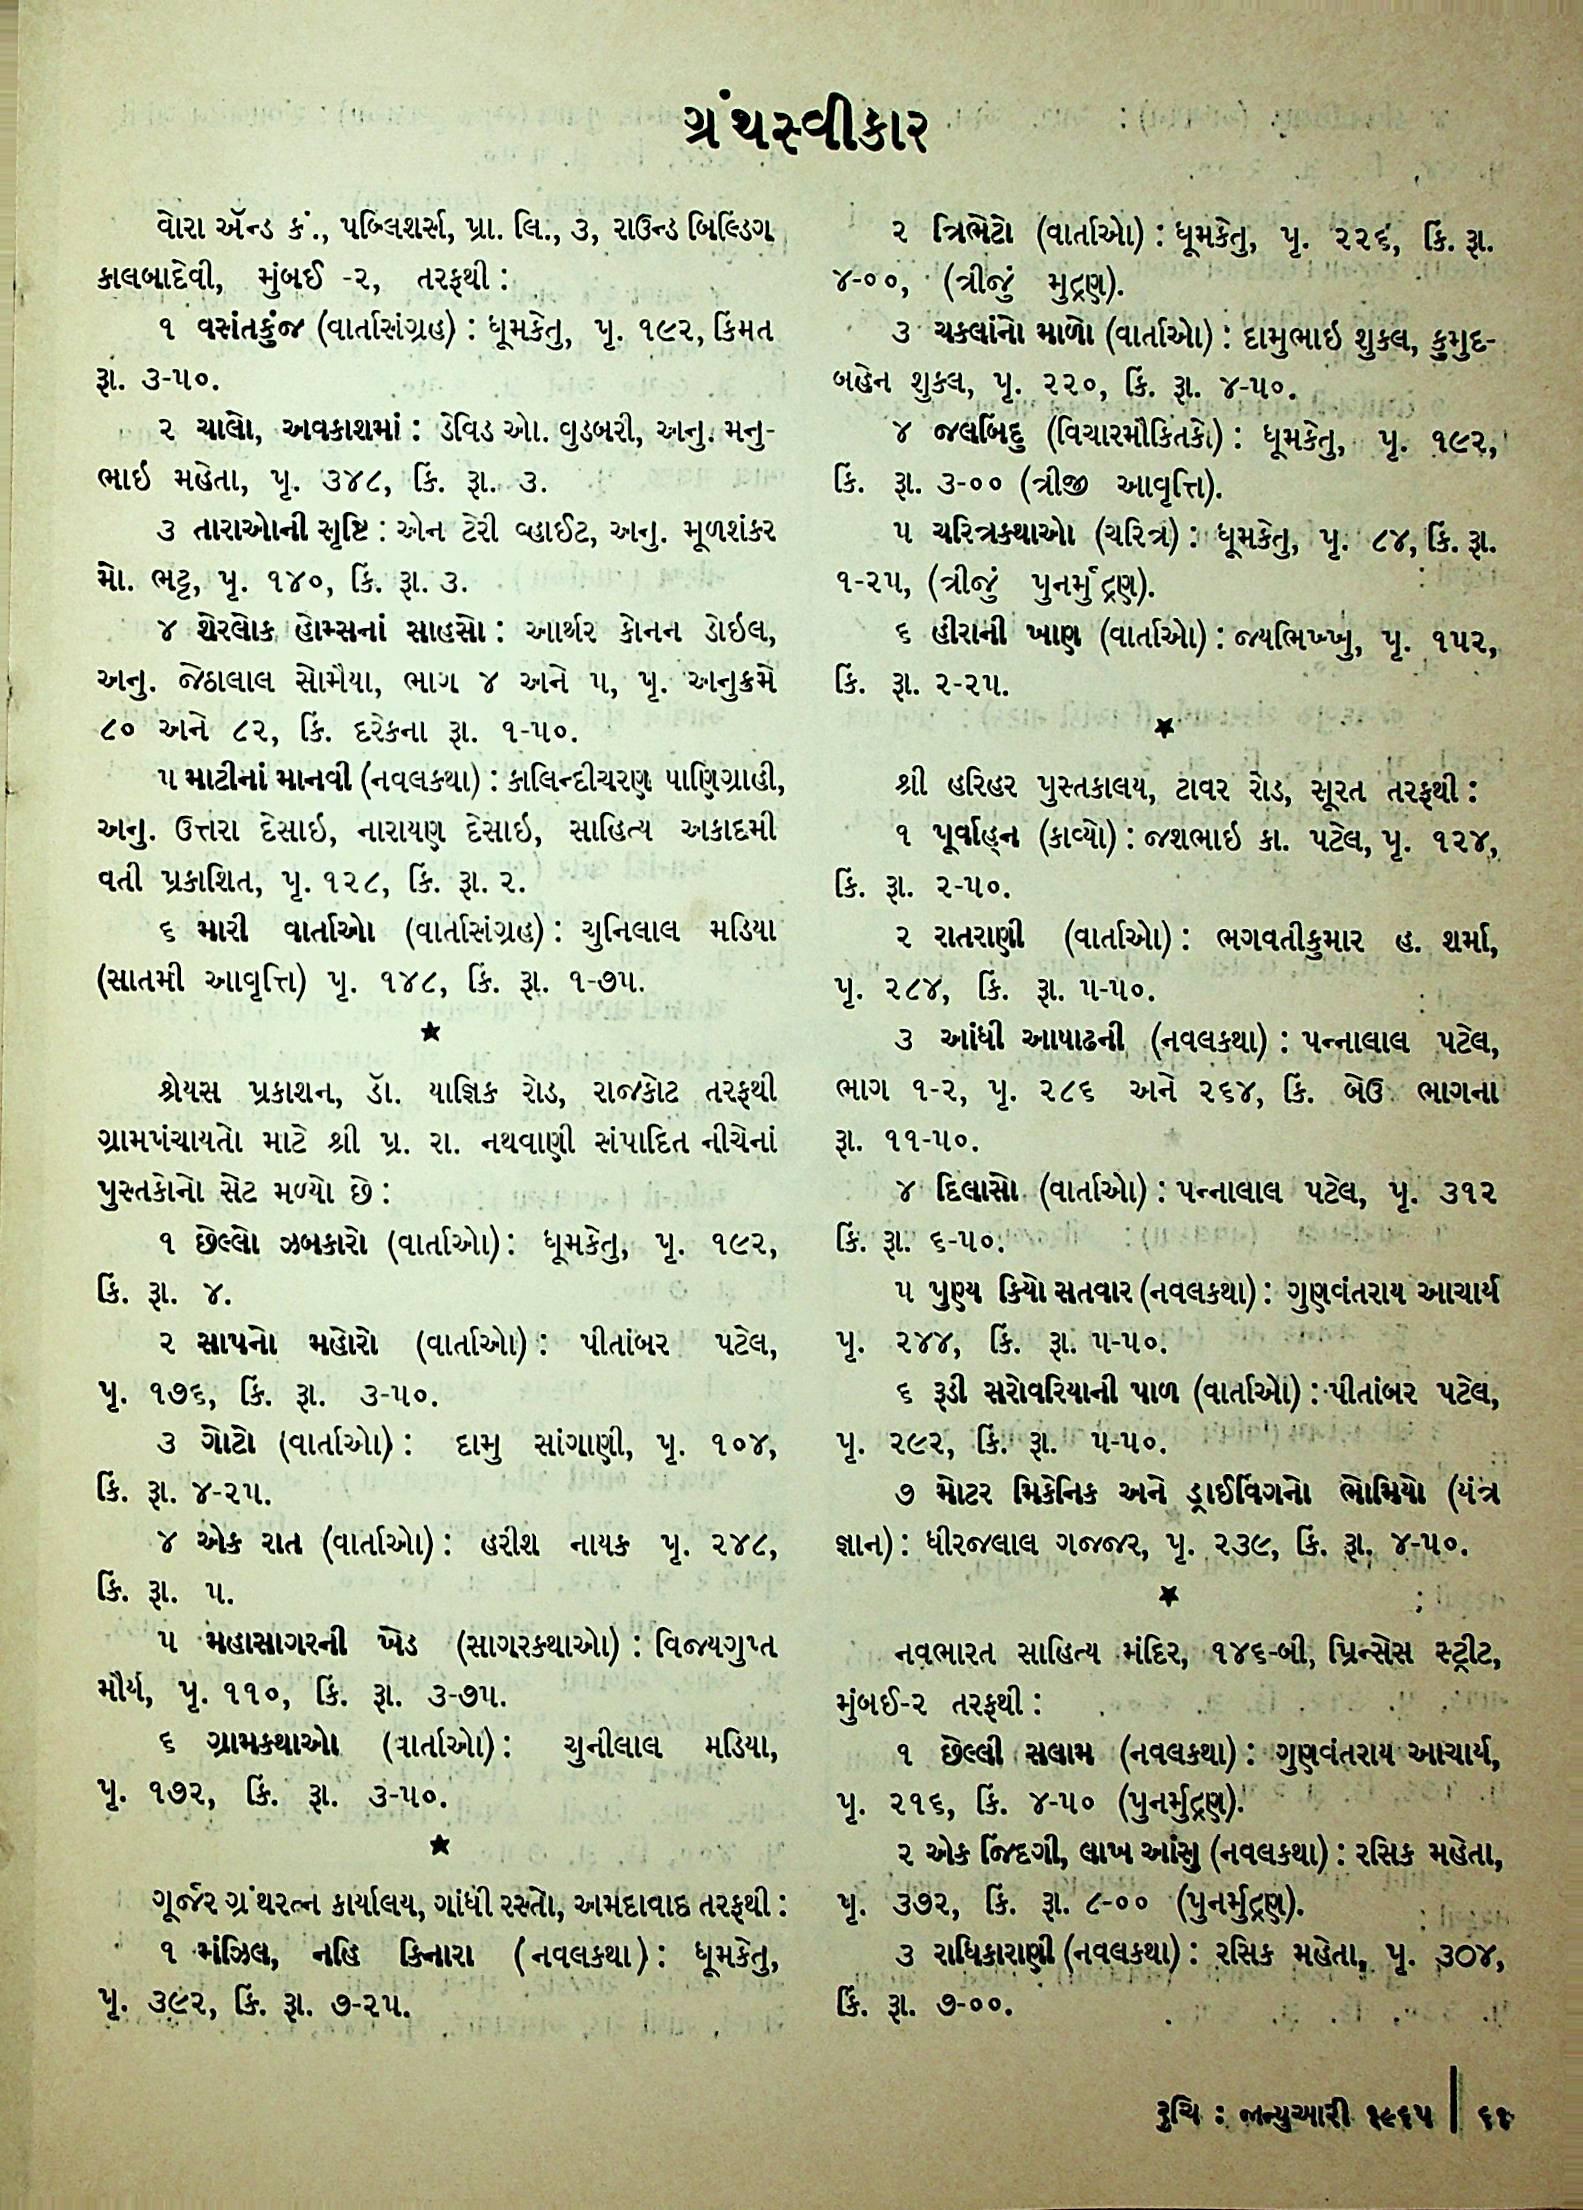 ગ્રંથસ્વીકાર
વોરા ઍન્ડ કં., પબ્લિશર્સ, પ્રા. લિ., ૩, રાઉન્ડ બિલ્ડિંગ
કાલબાદેવી, મુંબઈ -૨, તરફથી :
૧ વસંતકુંજ (વાર્તાસંગ્રહ) : ધૂમકેતુ, પૃ. ૧૯૨, કિંમત
રૂા. ૩-૫૦.
૨ ચાલો, અવકાશમાં : ડેવિડ ઓ. વુડબરી, અનુ. મનુ-
ભાઇ મહેતા, પૃ. ૩૪૮, કિં. રૂા. ૩.
૩ તારાઓની સૃષ્ટિ : એન ટેરી વ્હાઈટ, અનુ. મૂળશંકર
મો. ભટ્ટ, પૃ. ૧૪૦, કિં. રૂા. ૩.
૪ શેરલોક હોમ્સનાં સાહસો : આર્થર કોનન ડોઇલ,
અનુ. જેઠાલાલ સોમૈયા, ભાગ ૪ અને ૫, પૃ. અનુક્રમે
૮૦ અને ૮૨, કિં. દરેકના રૂા. ૧-૫૦.
૫ માટીનાં માનવી (નવલકથા) : કાલિન્દીચરણ પાણિગ્રાહી,
અનુ. ઉત્તરા દેસાઇ, નારાયણ દેસાઇ, સાહિત્ય અકાદમી
વતી પ્રકાશિત, પૃ. ૧૨૮, કિં. રૂા. ૨.
૬ મારી વાર્તાઓ (વાર્તાસંગ્રહ) : ચુનિલાલ મડિયા
(સાતમી આવૃત્તિ) પૃ. ૧૪૮, કિં. રૂા. ૧-૭૫.
★
શ્રેયસ પ્રકાશન, ડૉ. યાજ્ઞિક રોડ, રાજકોટ તરફથી
ગ્રામપંચાયતો માટે શ્રી પ્ર. રા. નથવાણી સંપાદિત નીચેનાં
પુસ્તકોનો સેટ મળ્યો છે :
૧ છેલ્લો ઝબકારો (વાર્તાઓ) : ધૂમકેતુ, પૃ. ૧૯૨,
કિં. રૂા. ૪.
૨ સાપનો મહોરો (વાર્તાઓ) : પીતાંબર પટેલ,
પૃ. ૧૭૬, કિં. રૂા. ૩-૫૦.
૩ ગોટો (વાર્તાઓ) : દામુ સાંગાણી, પૃ. ૧૦૪,
કિં. રૂા. ૪-૨૫.
૪ એક રાત (વાર્તાઓ) : હરીશ નાયક પૃ. ૨૪૮,
કિં. રૂા. ૫.
૫ મહાસાગરની ખેડ (સાગરકથાઓ) : વિજયગુપ્ત
મૌર્ય, પૃ. ૧૧૦, કિં. રૂા. ૩-૭૫.
૬ ગ્રામકથાઓ (વાર્તાઓ) : ચુનીલાલ મડિયા,
પૃ. ૧૭૨, કિં. રૂા. ૩-૫૦.
★
ગૂર્જર ગ્રંથરત્ન કાર્યાલય, ગાંધી રસ્તો, અમદાવાદ તરફથી :
૧ મંઝિલ, નહિ કિનારા (નવલકથા) : ધૂમકેતુ,
પૃ. ૩૯૨, કિં. રૂા. ૭-૨૫.
૨ ત્રિભેટો (વાર્તાઓ) : ધૂમકેતુ, પૃ. ૨૨૬, કિં. રૂા.
૪-૦૦, (ત્રીજું મુદ્રણ).
૩ ચકલાંનો માળો (વાર્તાઓ) : દામુભાઇ શુકલ, કુમુદ-
બહેન શુકલ, પૃ. ૨૨૦, કિં. રૂા. ૪-૫૦.
૪ જલબિંદુ (વિચારમૌકિતકો) : ધૂમકેતુ, પૃ. ૧૯૨,
કિં. રૂા. ૩-૦૦ (ત્રીજી આવૃત્તિ).
૫ ચરિત્રકથાઓ (ચરિત્ર) : ધૂમકેતુ, પૃ. ૮૪, કિં. રૂા.
૧-૨૫, (ત્રીજું પુનર્મુદ્રણ).
૬ હીરાની ખાણ (વાર્તાઓ) : જયભિખ્ખુ, પૃ. ૧૫૨,
કિં. રૂા. ૨-૨૫.
★
શ્રી હરિહર પુસ્તકાલય, ટાવર રોડ, સૂરત તરફથી :
૧ પૂર્વાહ્‌ન (કાવ્યો) : જશભાઇ કા. પટેલ, પૃ. ૧૨૪,
કિં. રૂા. ૨-૫૦.
૨ રાતરાણી (વાર્તાઓ) : ભગવતીકુમાર હ. શર્મા,
પૃ. ૨૮૪, કિં. રૂા. ૫-૫૦.
૩ આંધી આષાઢની (નવલકથા) : પન્નાલાલ પટેલ,
ભાગ ૧-૨, પૃ. ૨૮૬ અને ૨૬૪, કિં. બેઉ ભાગના
રૂા. ૧૧-૫૦.
૪ દિલાસો (વાર્તાઓ) : પન્નાલાલ પટેલ, પૃ. ૩૧૨
કિં. રૂા. ૬-૫૦.
૫ પુણ્ય કિયો સતવાર (નવલકથા) : ગુણવંતરાય આચાર્ય
પૃ. ૨૪૪, કિં. રૂા. ૫-૫૦.
૬ રૂડી સરોવરિયાની પાળ (વાર્તાઓ) : પીતાંબર પટેલ,
પૃ. ૨૯૨, કિં. રૂા. ૫-૫૦.
૭ મોટર મિકેનિક અને ડ્રાઈવિંગનો ભોમિયો (યંત્ર
જ્ઞાન) : ધીરજલાલ ગજ્જર, પૃ. ૨૩૯, કિં. રૂા. ૪-૫૦.
★
નવભારત સાહિત્ય મંદિર, ૧૪૬-બી, પ્રિન્સેસ સ્ટ્રીટ,
મુંબઈ-૨ તરફથી :
૧ છેલ્લી સલામ (નવલકથા) : ગુણવંતરાય આચાર્ય,
પૃ. ૨૧૬, કિં. ૪-૫૦ (પુનર્મુદ્રણ).
૨ એક જિંદગી, લાખ આંસુ (નવલકથા) : રસિક મહેતા,
પૃ. ૩૭૨, કિં. રૂા. ૮-૦૦ (પુનર્મુદ્રણ).
૩ રાધિકારાણી (નવલકથા) : રસિક મહેતા, પૃ. ૩૦૪,
કિં. રૂા. ૭-૦૦.
રુચિ : જાન્યુઆરી ૧૯૬૫ | ૬૧